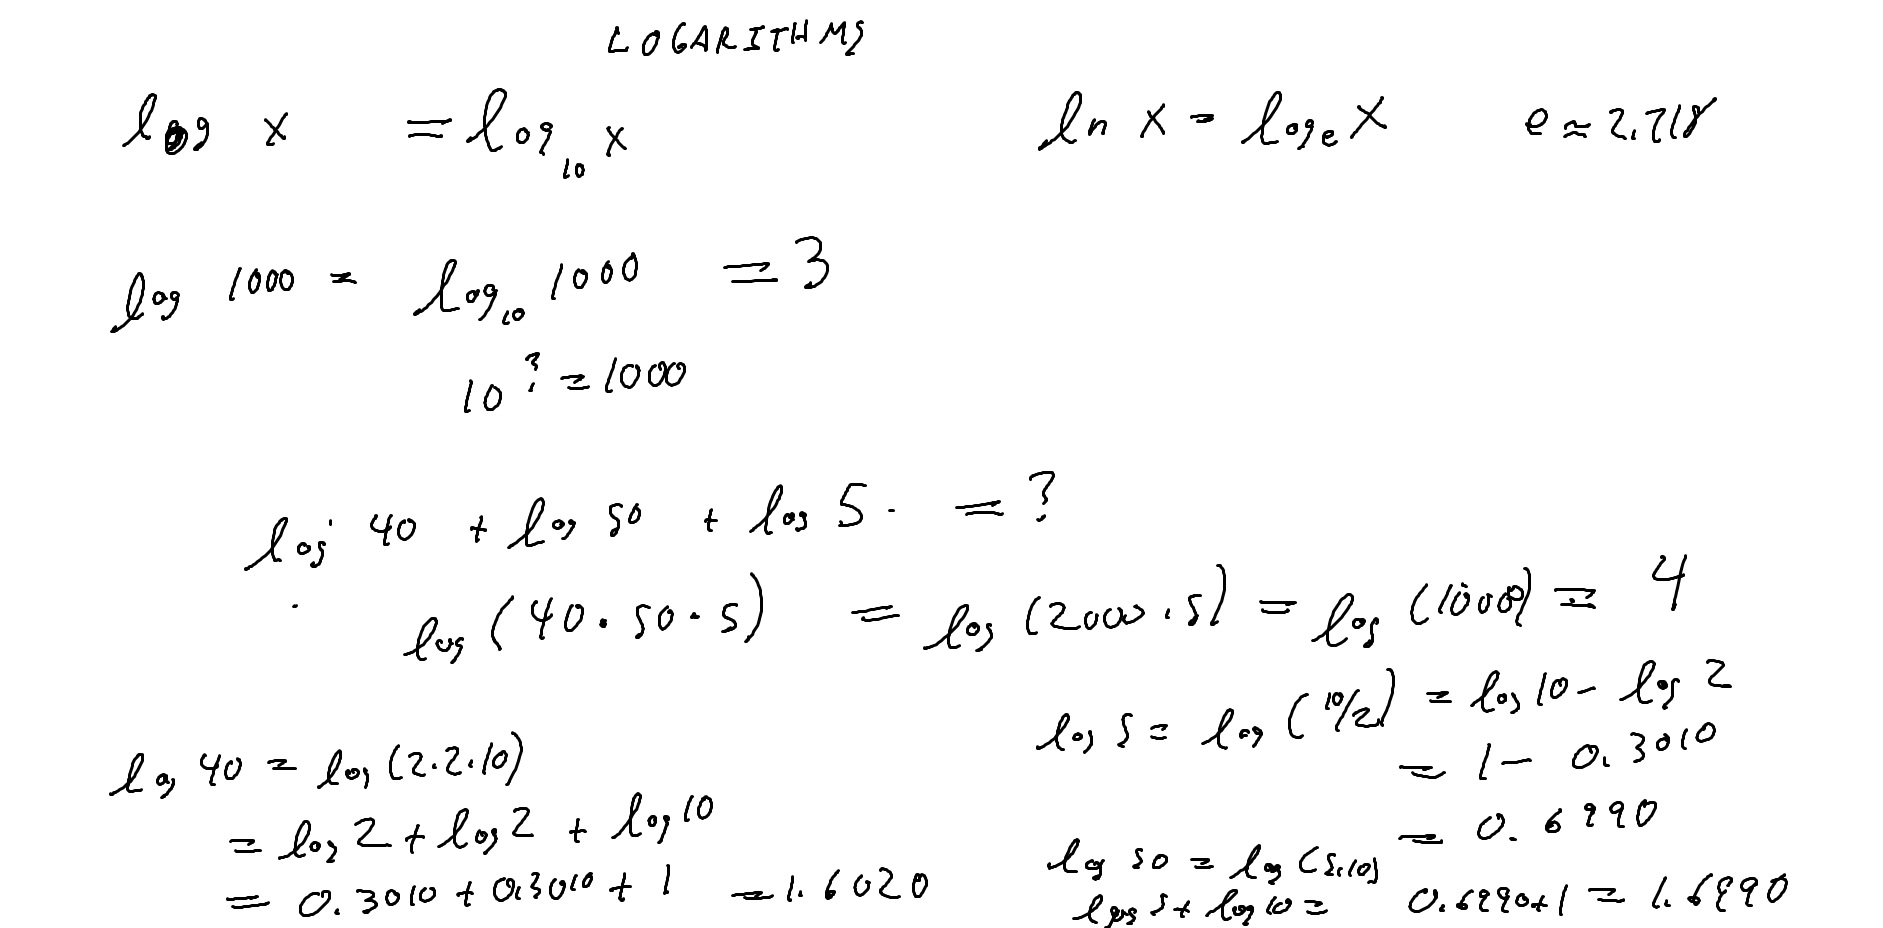 LOGARITHMS
log x = log₁₀ x ln x = logₑ x e ≈ 2.718
log 1000 = log₁₀ 1000 = 3
10^? = 1000
log 40 + log 50 + log 5. = ?
log (40 · 50 · 5) = log (2000 · 5) = log (10000) = 4
log 5 = log (10/2) = log 10 - log 2
= 1 - 0.3010
= 0.6990
log 40 = log (2·2·10)
= log 2 + log 2 + log 10
= 0.3010 + 0.3010 + 1 = 1.6020
log 50 = log (5·10)
log 5 + log 10 = 0.6990+1 = 1.6990